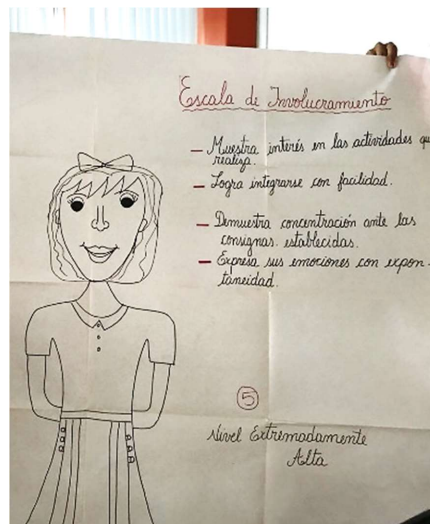 Escala de Involucramiento
— Muestra interés en las actividades qu
realiza.
— Logra integrarse con facilidad.
— Demuestra concentración ante las
consignas. establecidas.
— Expresa sus emociones con expon-
taneidad.
5
Nivel Extremadamente
Alta